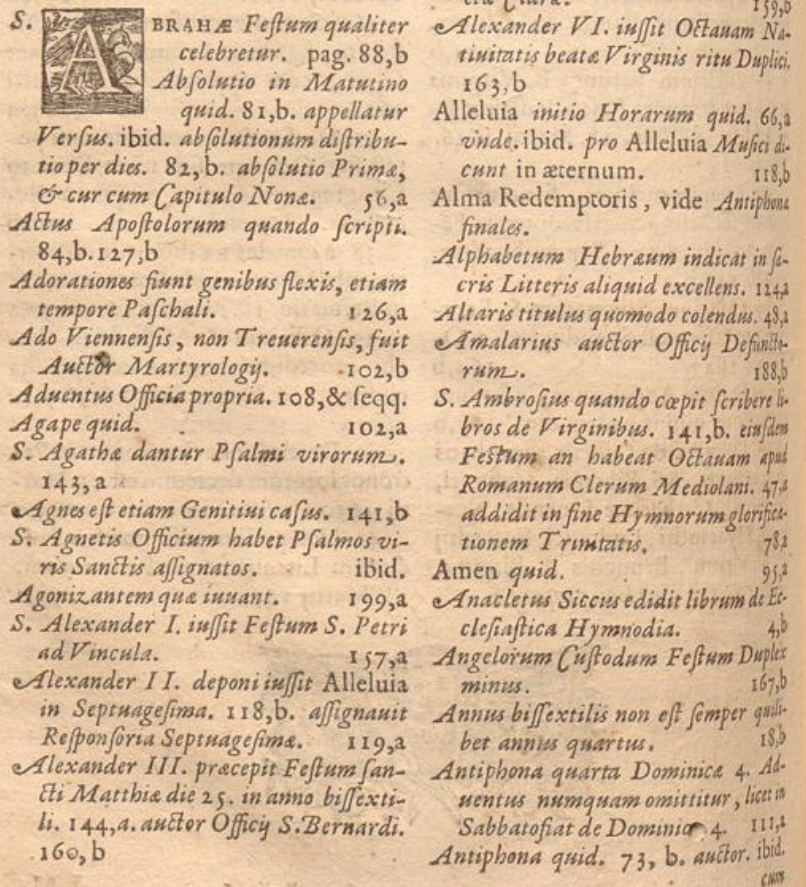 S. ABRAHÆ Feſtum qualiter
celebretur. pag. 88,b
Abſolutio in Matutino
quid. 81,b. appellatur
Verſus. ibid. abſolutionum diſtribu-
tio per dies. 82, b. abſolutio Primæ,
& cur cum Capitulo Nonæ. 56,a
Actus Apoſtolorum quando ſcripti.
84,b.127,b
Adorationes fiunt genibus flexis, etiam
tempore Paſchali. 126,a
Ado Viennenſis, non Treuerenſis, fuit
Auctor Martyrologij. 102,b
Aduentus Officia propria. 108,& ſeqq.
Agape quid. 102,a
S. Agathæ dantur Pſalmi virorum.
143,a
Agnes eſt etiam Genitiui caſus. 141,b
S. Agnetis Officium habet Pſalmos vi-
ris Sanctis aſſignatos. ibid.
Agonizantem quæ iuuant. 199,a
S. Alexander I. iuſſit Feſtum S. Petri
ad Vincula. 157,a
Alexander II. deponi iuſſit Alleluia
in Septuageſima. 118,b. aſſignauit
Reſponſoria Septuageſimæ. 119,a
Alexander III. præcepit Feſtum ſan-
cti Matthiæ die 25. in anno biſſexti-
li. 144,a. auctor Officij S. Bernardi.
160,b
159,b
Alexander VI. iuſſit Octauam Na-
tiuitatis beatæ Virginis ritu Duplici.
163,b
Alleluia initio Horarum quid. 66,a
vnde. ibid. pro Alleluia Muſici di-
cunt in æternum. 118,b
Alma Redemptoris, vide Antiphonæ
finales.
Alphabetum Hebræum indicat in ſa-
cris Litteris aliquid excellens. 124,a
Altaris titulus quomodo colendus. 48,a
Amalarius auctor Officij Defuncto-
rum. 188,b
S. Ambroſius quando cœpit ſcribere li-
bros de Virginibus. 141,b. eiuſdem
Feſtum an habeat Octauam apud
Romanum Clerum Mediolani. 47,a
addidit in fine Hymnorum glorifica-
tionem Trinitatis. 78,a
Amen quid. 95,a
Anacletus Siccus edidit librum de Ec-
cleſiaſtica Hymnodia. 4,b
Angelorum Cuſtodum Feſtum Duplex
minus. 167,b
Annus biſſextilis non eſt ſemper quili-
bet annus quartus. 18,b
Antiphona quarta Dominicæ 4. Ad-
uentus numquam omittitur, licet in
Sabbato fiat de Dominica 4. 111,a
Antiphona quid. 73, b. auctor. ibid.
cum